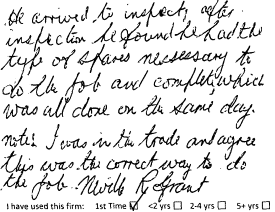 He arrived to inspect, after
inspection he found he had the
type of spares necessary to
do the job and complete, which
was all done on the same day.
note: I was in the trade and agree
this was the correct way to do
the job. Nevill R Grant
I have used this firm: 1st Time ☑ <2 yrs ☐ 2-4 yrs ☐ 5+ yrs ☐